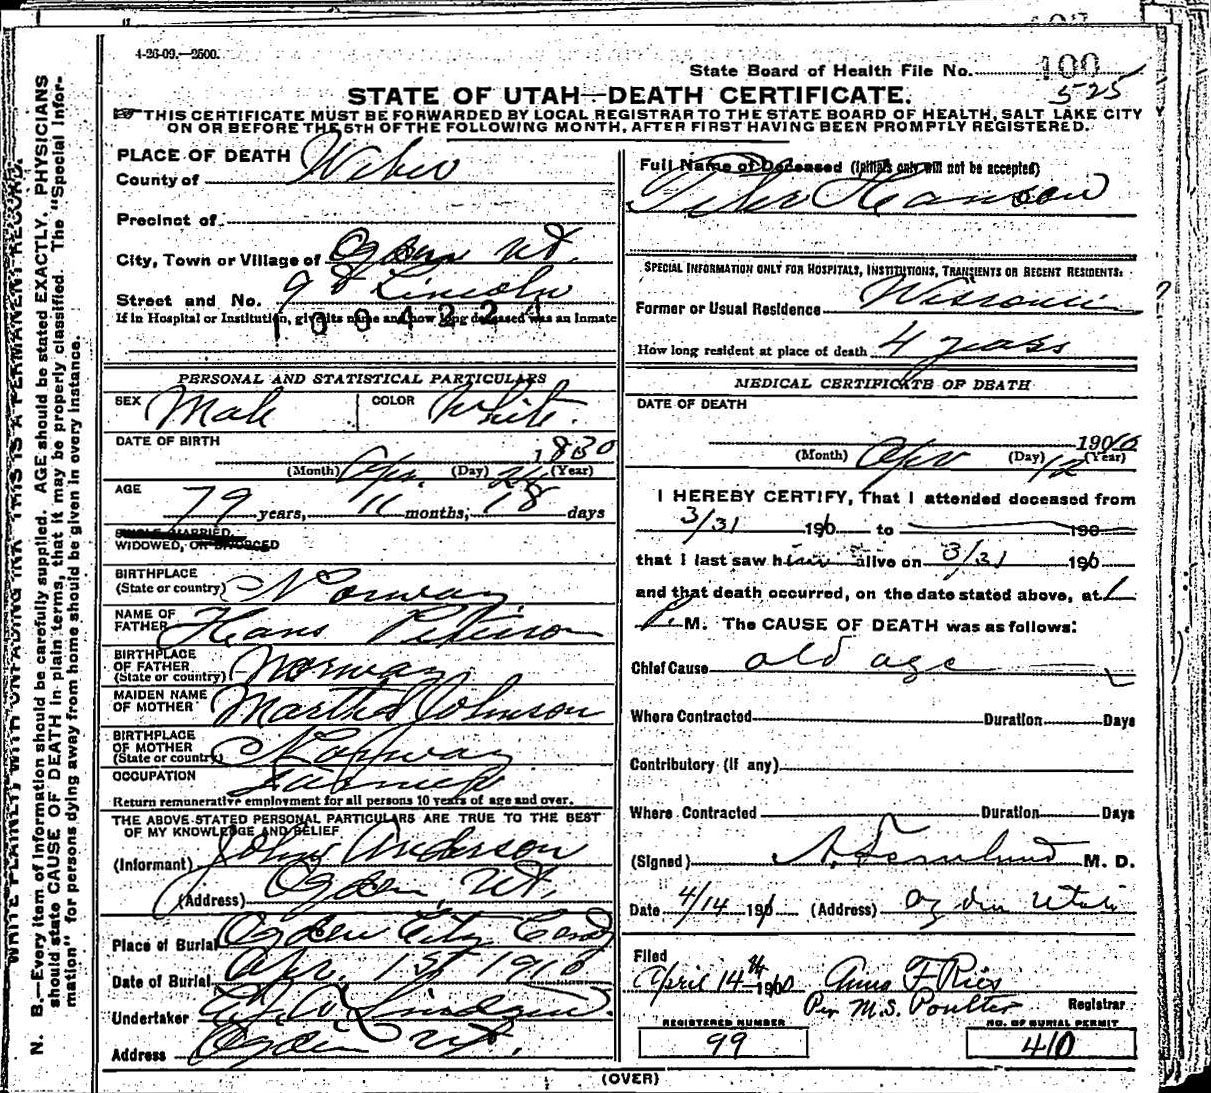 4-26-09.—2500.
State Board of Health File No. 100
525
STATE OF UTAH—DEATH CERTIFICATE.
THIS CERTIFICATE MUST BE FORWARDED BY LOCAL REGISTRAR TO THE STATE BOARD OF HEALTH, SALT LAKE CITY
ON OR BEFORE THE 5TH OF THE FOLLOWING MONTH, AFTER FIRST HAVING BEEN PROMPTLY REGISTERED.
WRITE PLAINLY, WITH UNFADING INK—THIS IS A PERMANENT RECORD.
N. B.—Every item of information should be carefully supplied. AGE should be stated EXACTLY. PHYSICIANS
should state CAUSE OF DEATH in plain terms, that it may be properly classified. The "Special Infor-
mation" for persons dying away from home should be given in every instance.
PLACE OF DEATH
County of Weber
Precinct of
City, Town or Village of Ogden Ut.
Street and No. Lincoln
If in Hospital or Institution, give its name and how long deceased was an Inmate
PERSONAL AND STATISTICAL PARTICULARS
SEX Male COLOR White.
DATE OF BIRTH
1830
(Month) Apr. (Day) (Year)
AGE
79 years, 11 months, 18 days
SINGLE, MARRIED,
WIDOWED, OR DIVORCED
BIRTHPLACE
(State or country) Norway
NAME OF
FATHER Hans Peterson
BIRTHPLACE
OF FATHER
(State or country) Norway
MAIDEN NAME
OF MOTHER Martha Johnson
BIRTHPLACE
OF MOTHER
(State or country) Norway
OCCUPATION
Return remunerative employment for all persons 10 years of age and over.
THE ABOVE STATED PERSONAL PARTICULARS ARE TRUE TO THE BEST
OF MY KNOWLEDGE AND BELIEF
(Informant) John Anderson
(Address) Ogden, Ut.
Place of Burial Ogden City Cemt
Date of Burial Apr. 1910
Undertaker
Address Ogden Ut.
Full Name of Deceased (Initials only will not be accepted)
Peter Hanson
SPECIAL INFORMATION ONLY FOR HOSPITALS, INSTITUTIONS, TRANSIENTS OR RECENT RESIDENTS:
Former or Usual Residence
How long resident at place of death 4 years
MEDICAL CERTIFICATE OF DEATH
DATE OF DEATH
1910
(Month) Apr (Day) 12 (Year)
I HEREBY CERTIFY, That I attended deceased from
3/31 190 to 190
that I last saw him alive on 3/31 190
and that death occurred, on the date stated above, at 1
P. M. The CAUSE OF DEATH was as follows:
Chief Cause old age
Where Contracted Duration Days
Contributory (if any)
Where Contracted Duration Days
(Signed) M. D.
Date 4/14 191 (Address) Ogden Utah
Filed
April 14th 1910 Anna F Ries
Per M.S. Poulter Registrar
REGISTERED NUMBER
99
NO. OF BURIAL PERMIT
410
(OVER)